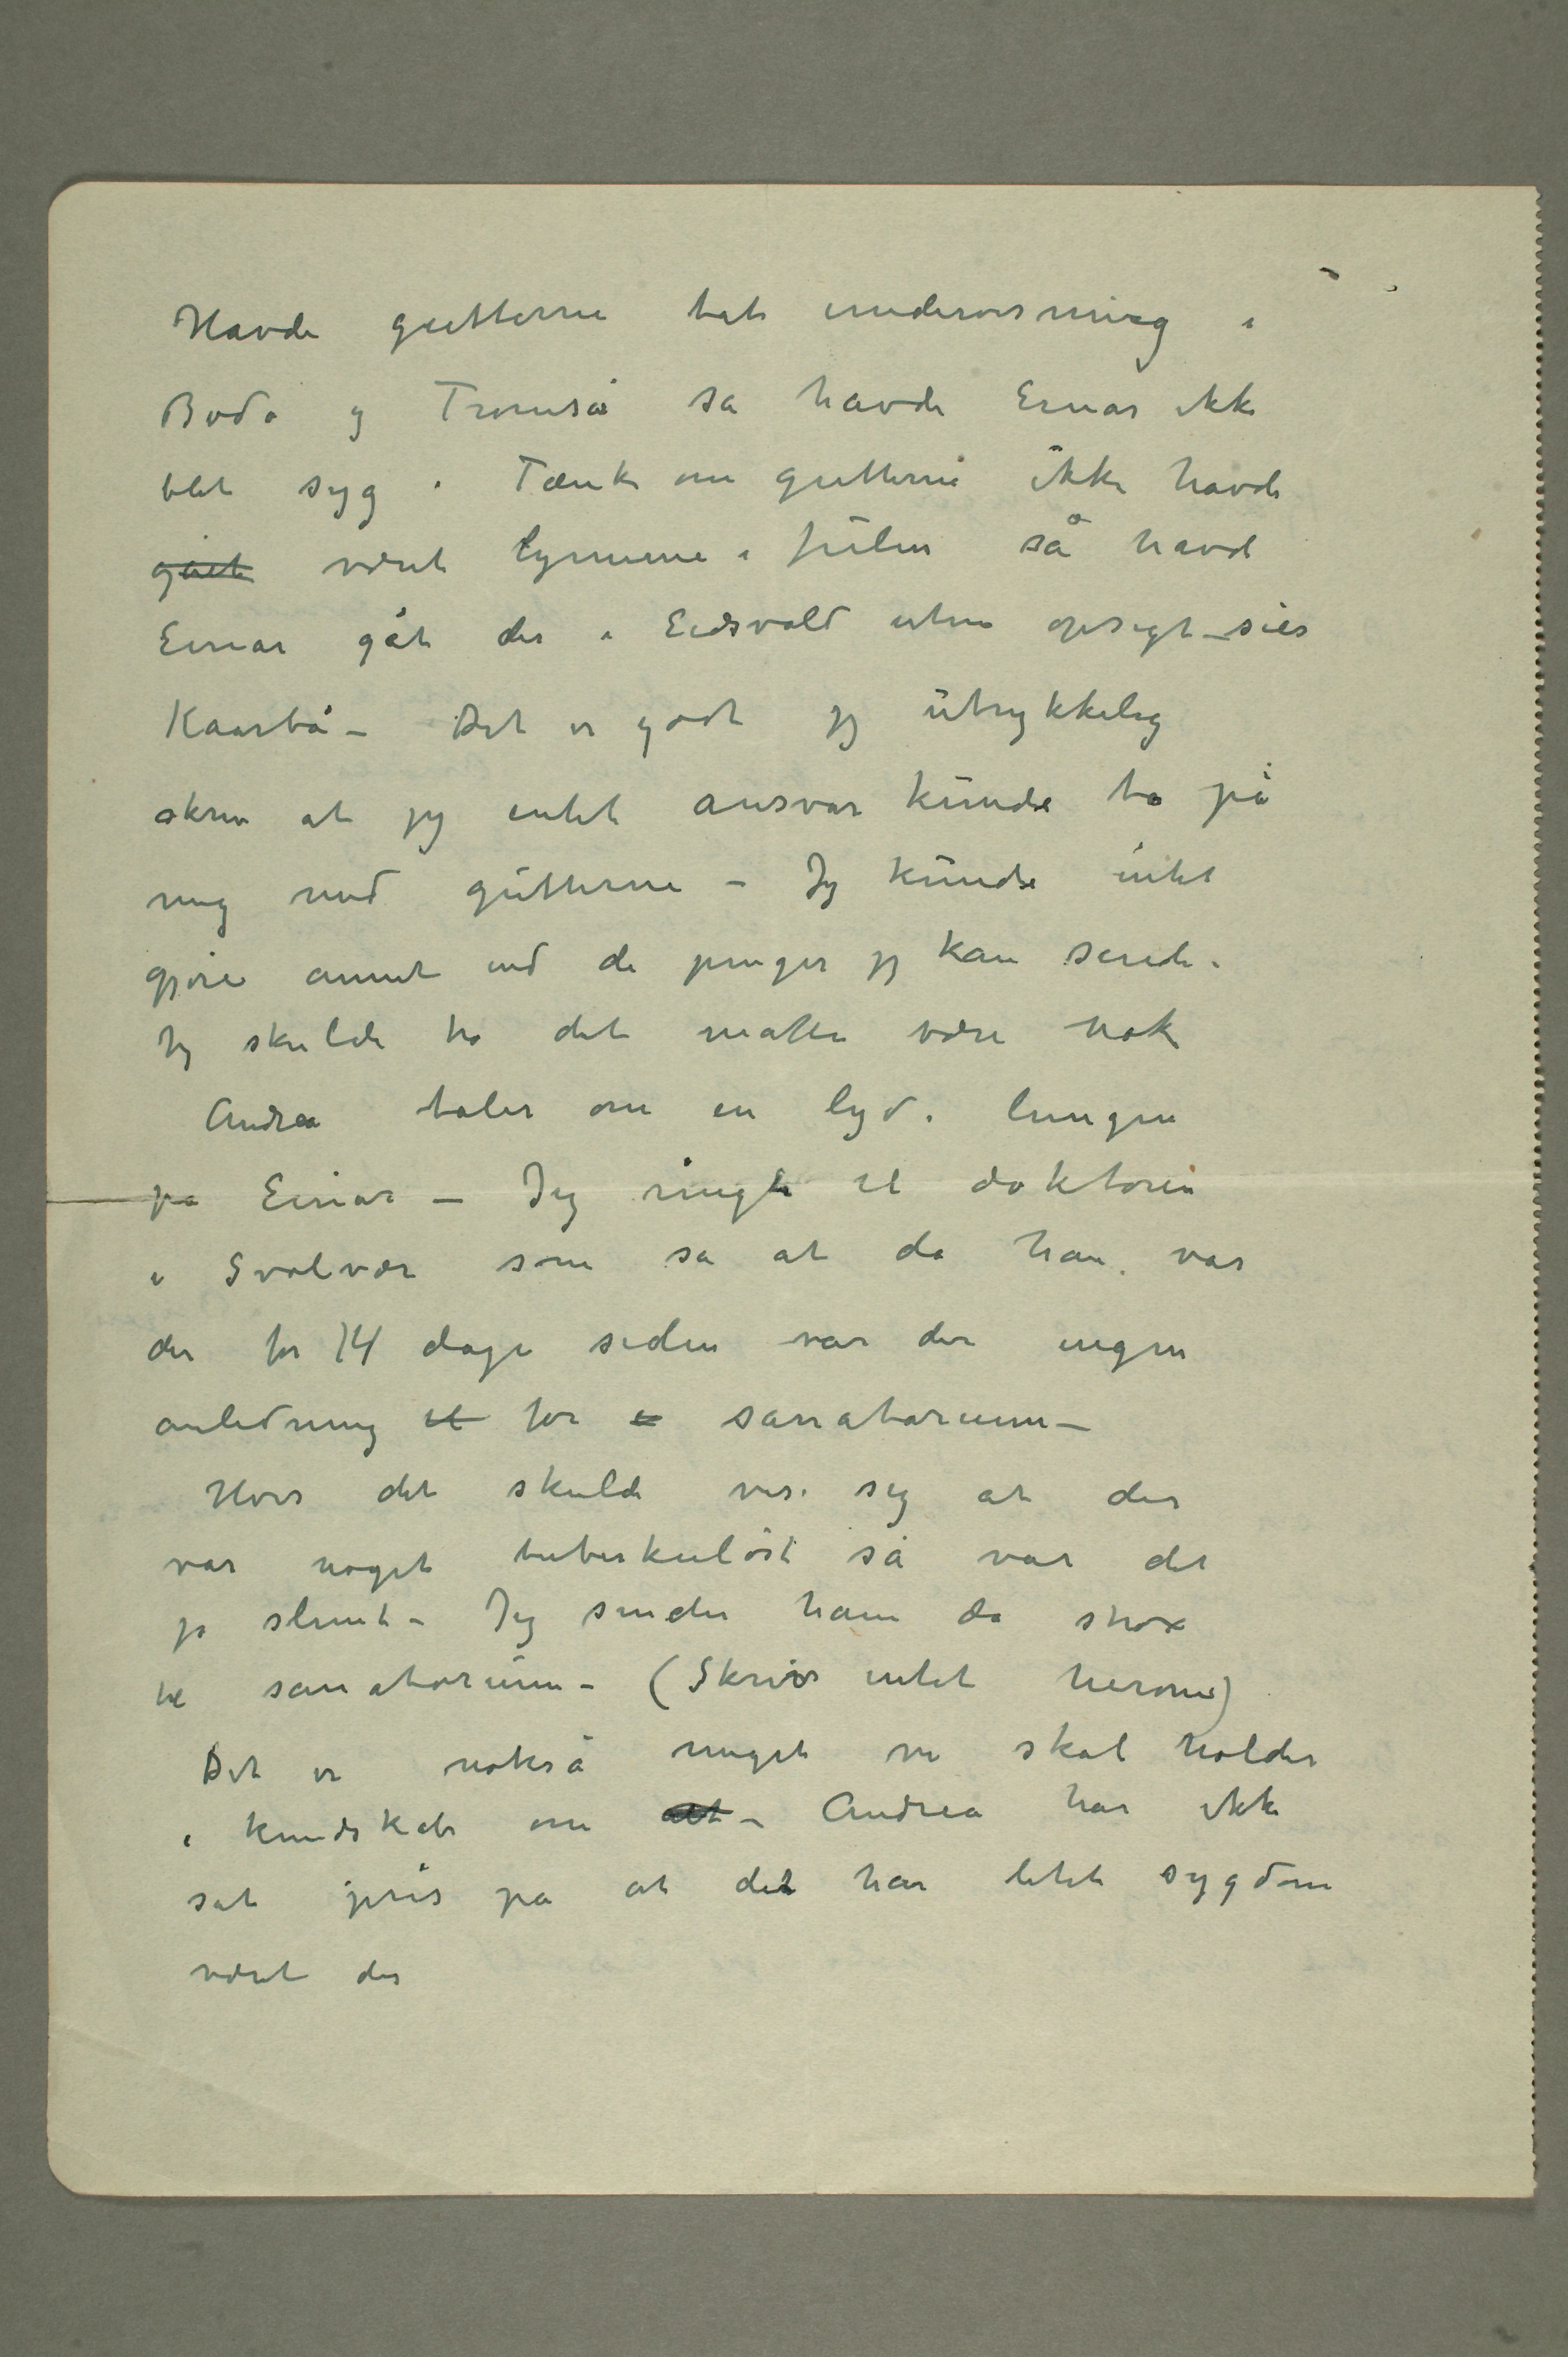 Havde gutterne tat undervisning i
Bodø og Tromsø så havde Einar ikke
blet syg. Tænk om gutterne ikke havde
gået været hjemme i julen så havde
Einar gåt der i Eidsvold uten opsigt – sier
Kaarbø – Det er godt jeg utrykkelig
skrev at jeg intet ansvar kunde ta på
mig med gutterne – Jeg kunde intet
gjøre annet end de penger jeg kan sende.
Jeg skulde tro det måtte være nok
Andrea taler om en lyd i lungen
på Einar – Jeg ringte til doktoren
i Svolvær som sa at da han var
der for 14 dage siden var der ingen
anledning til for e sanatorium –
Hvis det skulde vise sig at der
var noget tuberkuløst så var det
jo slemt – Jeg sender ham da strax
til sanatorium – (Skriv intet herom)
Det er nokså meget vi skal holdes
i kundskab om alt – Andrea har ikke
sat pris på at det har litet sygdom
været der